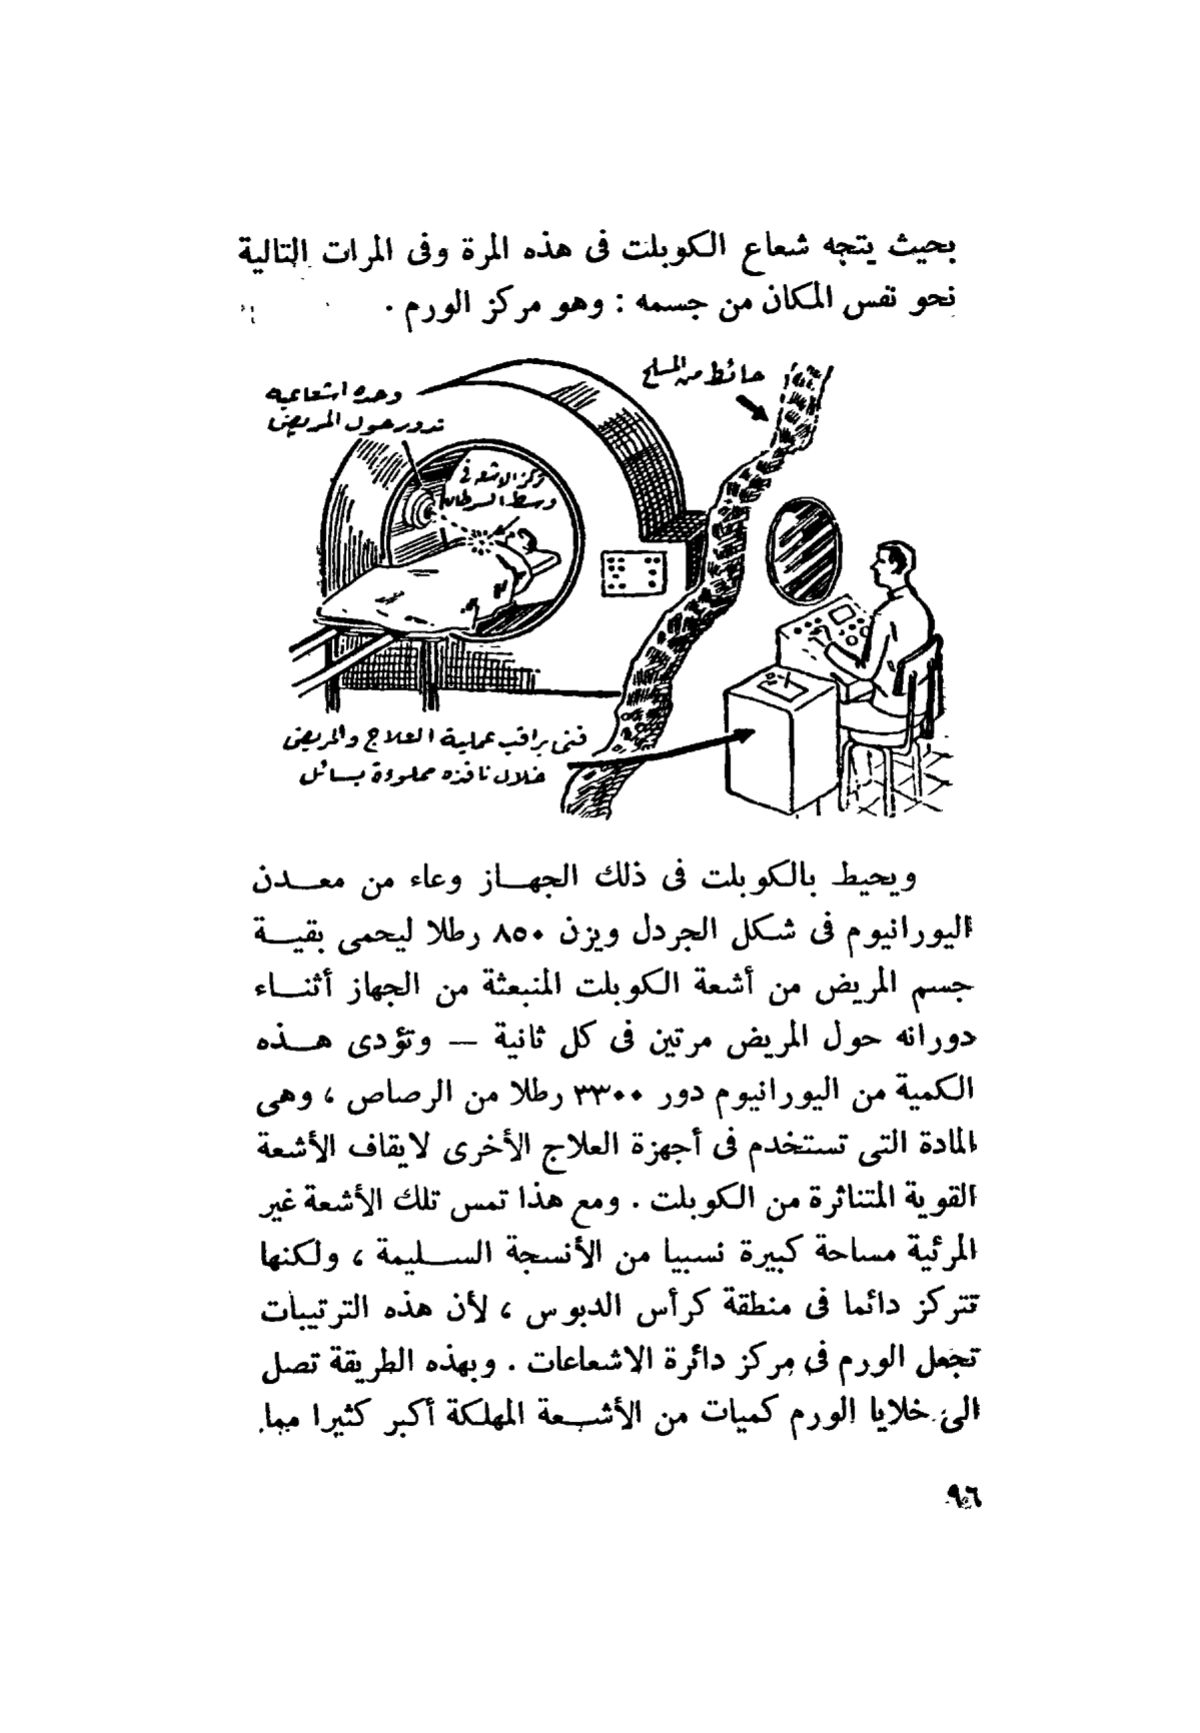 بحيث يتجه شعاع الكوبلت فى هذه المرة وفى المرات التالية
نحو نفس المكان من جسمه : وهو مركز الورم .
حائط من المسلح
وحده اشعاعيه
تدور حول المريض
تركز الاشعه فى
وسط السرطان
فنى يراقب عملية العلاج والمريض
خلال نافذه مملوءة بسائل
ويحيط بالكوبلت فى ذلك الجهاز وعاء من معدن
اليورانيوم فى شكل الجردل ويزن ٨٥٠ رطلا ليحمى بقية
جسم المريض من أشعة الكوبلت المنبعثة من الجهاز أثناء
دورانه حول المريض مرتين فى كل ثانية — وتؤدى هذه
الكمية من اليورانيوم دور ٣٣٠٠ رطلا من الرصاص ، وهى
المادة التى تستخدم فى أجهزة العلاج الأخرى لايقاف الأشعة
القوية المتناثرة من الكوبلت . ومع هذا تمس تلك الأشعة غير
المرئية مساحة كبيرة نسبيا من الأنسجة السليمة ، ولكنها
تتركز دائما فى منطقة كرأس الدبوس ، لأن هذه الترتيبات
تجعل الورم فى مركز دائرة الاشعاعات . وبهذه الطريقة تصل
الى خلايا الورم كميات من الأشعة المهلكة أكبر كثيرا مما
٩٦